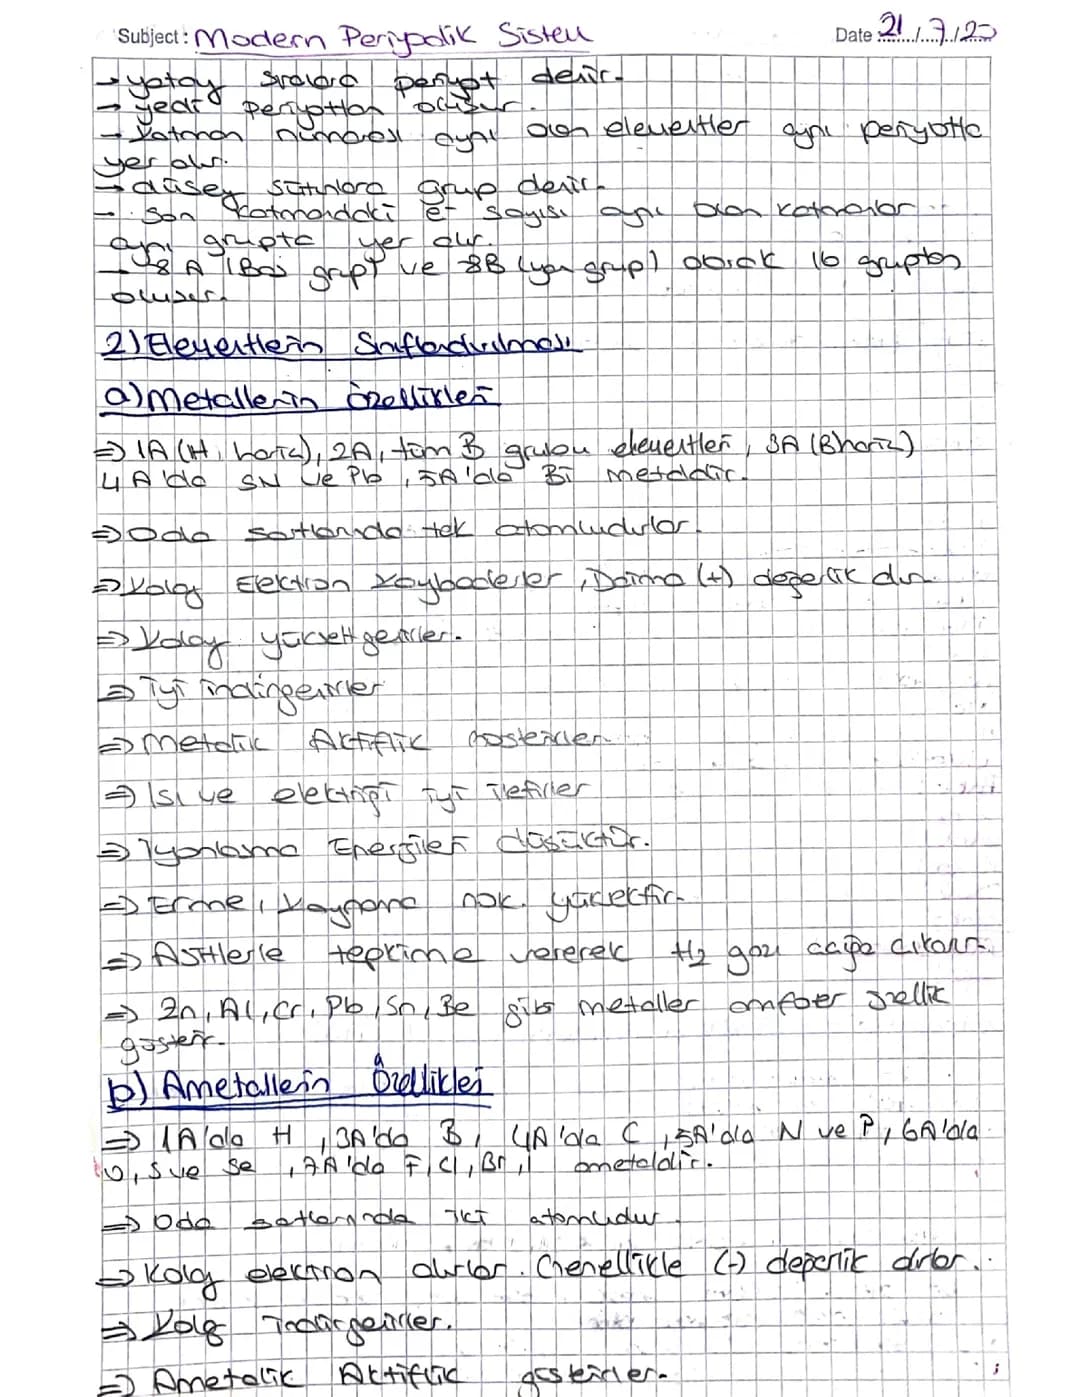 Subject: Modern Periyodik Sistem
Date: 21/7/25
→ yatay sıralara periyot denir.
→ yedi periyottan oluşur.
→ Katman numarası aynı olan elementler aynı periyotta
yer alır.
→ düşey sütunlara grup denir.
→ Son katmandaki e- sayısı aynı olan katmanlar
aynı grupta yer alır.
→ 8A (Baş grup) ve 8B (yan grup) olarak 16 gruptan
oluşur.
2) Elementlerin Sınıflandırılması
a) Metallerin Özellikleri
⇒ 1A (H hariç), 2A, tüm B grubu elementleri, 3A (B hariç)
4A'da SN ve Pb, 5A'da Bi metaldir.
⇒ Oda şartlarında tek atomludurlar.
⇒ Kolay Elektron kaybederler, Daima (+) değerlik alır.
⇒ Kolay yükseltgenirler.
⇒ İyi indirgenirler
⇒ Metalik Aktiflik gösterirler.
⇒ Isı ve elektriği iyi iletirler
⇒ İyonlaşma Enerjileri düşüktür.
⇒ Erime, kaynama nok. yüksektir.
⇒ Asitlerle tepkime vererek H2 gazı açığa çıkarır.
⇒ Zn, Al, Cr, Pb, Sn, Be gibi metaller amfoter özellik
gösterir.
b) Ametallerin Özellikleri
⇒ 1A'da H, 3A'da B, 4A'da C, 5A'da N ve P, 6A'da
O, S ve Se, 7A'da F, Cl, Br, I ametaldir.
⇒ Oda şartlarında iki atomludur.
⇒ Kolay elektron alırlar. Genellikle (-) değerlik alırlar.
⇒ Kolay indirgenirler.
⇒ Ametalik Aktiflik gösterirler.